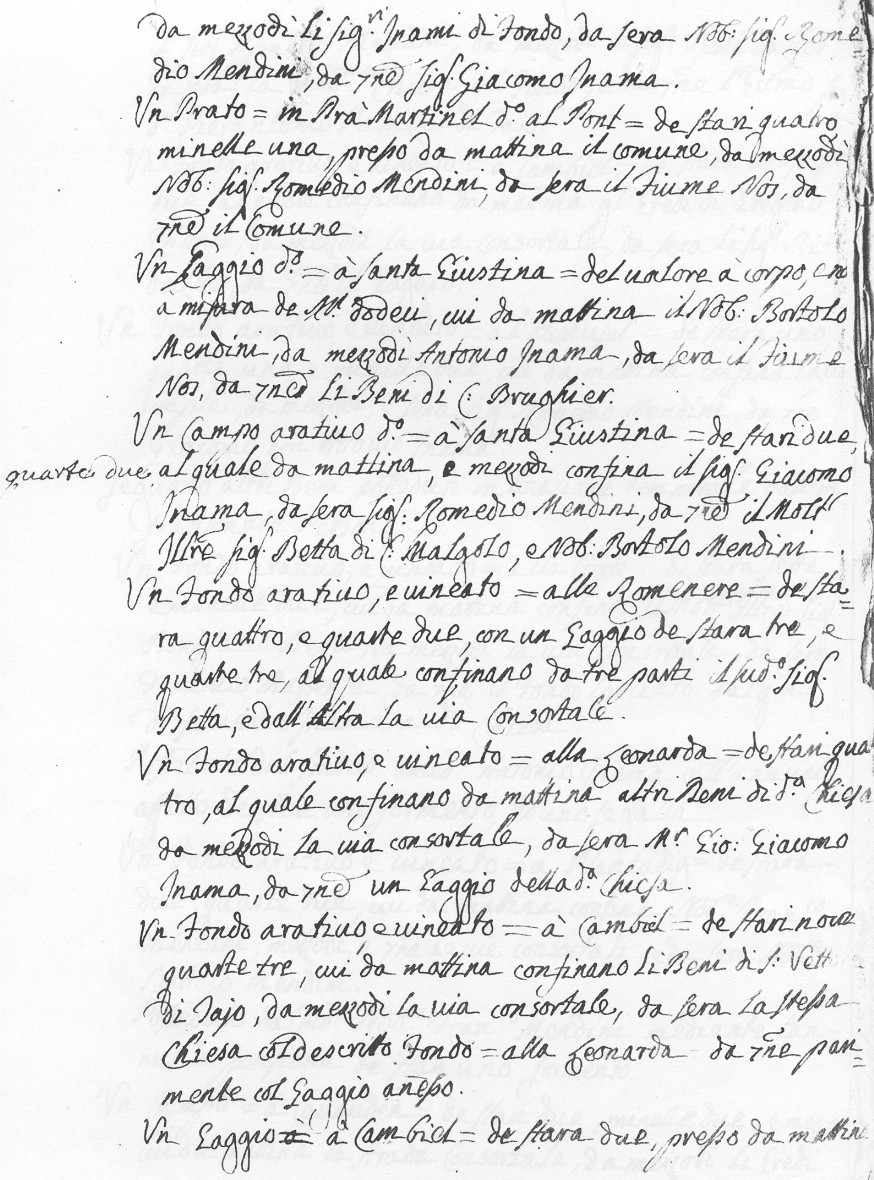 da mezzodì li sig.ri Inami di Fondo, da sera Nob: sig. Rome=
dio Mendini, da 7ne sig. Giacomo Inama.
Un Prato = in Prà Martinel d.o al Pont = de stari quatro,
minelle una, presso da mattina il comune, da mezzodì
Nob: sig. Romedio Mendini, da sera il Fiume Nos, da
7ne il Comune.
Un Gaggio d.o = à santa Giustina = del ualore à corpo, e no
à misura de dodeci, cui da mattina il Nob: Bortolo
Mendini, da mezzodì Antonio Inama, da sera il Fiume
Nos, da 7ne li Beni di C: Brughier.
Un Campo aratiuo d.o = à santa Giustina = de stari due,
quarte due al quale da mattina, e mezzodì confina il sig. Giacomo
Inama, da sera sig: Romedio Mendini, da 7ne il Molt'
Ill're sig. Betta di C: Malgolo, e Nob: Bortolo Mendini.
Un Fondo aratiuo, e uineato = alle Romenere = de sta=
ra quattro, e quarte due, con un Gaggio de stara tre, e
quarte tre, al quale confinano da tre parti il sud.o sig.
Betta, e dall'altra la uia Consortale.
Un Fondo aratiuo, e uineato = alla Leonarda = de stari quat
tro, al quale confinano da mattina altri Beni di d.a Chiesa
da mezzodì la uia consortale, da sera M.r Gio: Giacomo
Inama, da 7ne un Gaggio della d.a Chiesa.
Un Fondo aratiuo, e uineato = à Cambiel = de stari noue
quarte tre, cui da mattina confinano li Beni di S: Vett
di Tajo, da mezzodì la uia consortale, da sera la stessa
Chiesa col descritto Fondo = alla Leonarda = da 7ne pari=
mente col Gaggio anesso.
Un Gaggio à Cambiel = de stara due, presso da mattina